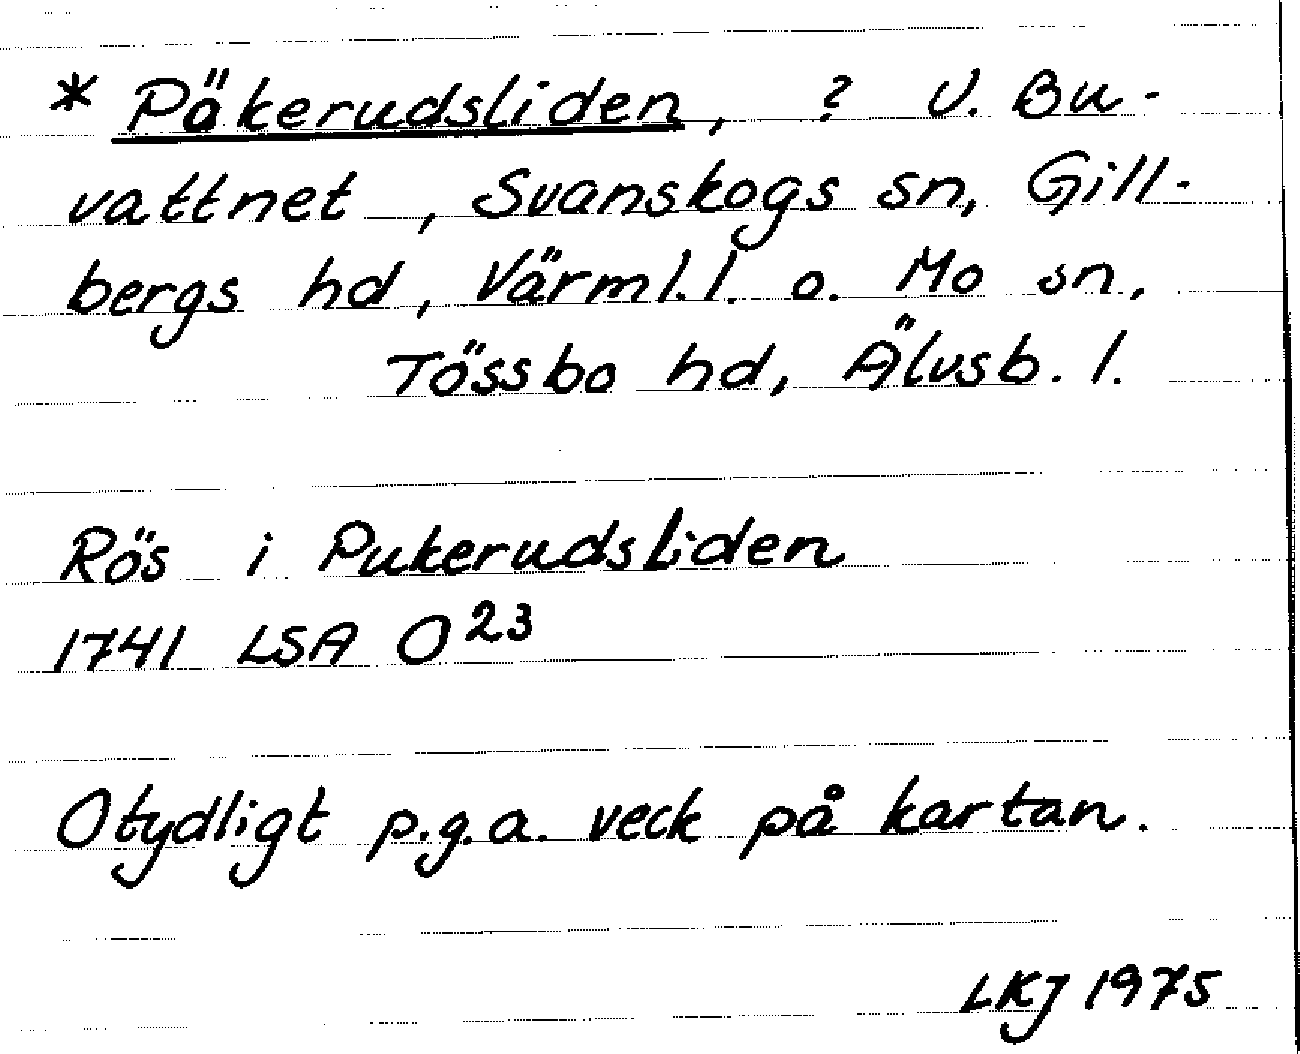 * Päkerudsliden, ? V. Bu-
vattnet, Svanskogs sn, Gill-
bergs hd, Värml. l. o. Mo sn,
Tössbo hd, Älvsb. l.
Rös i Pukerudsliden
1741 LSA O²³
Otydligt p.g.a. veck på kartan.
LKJ 1975